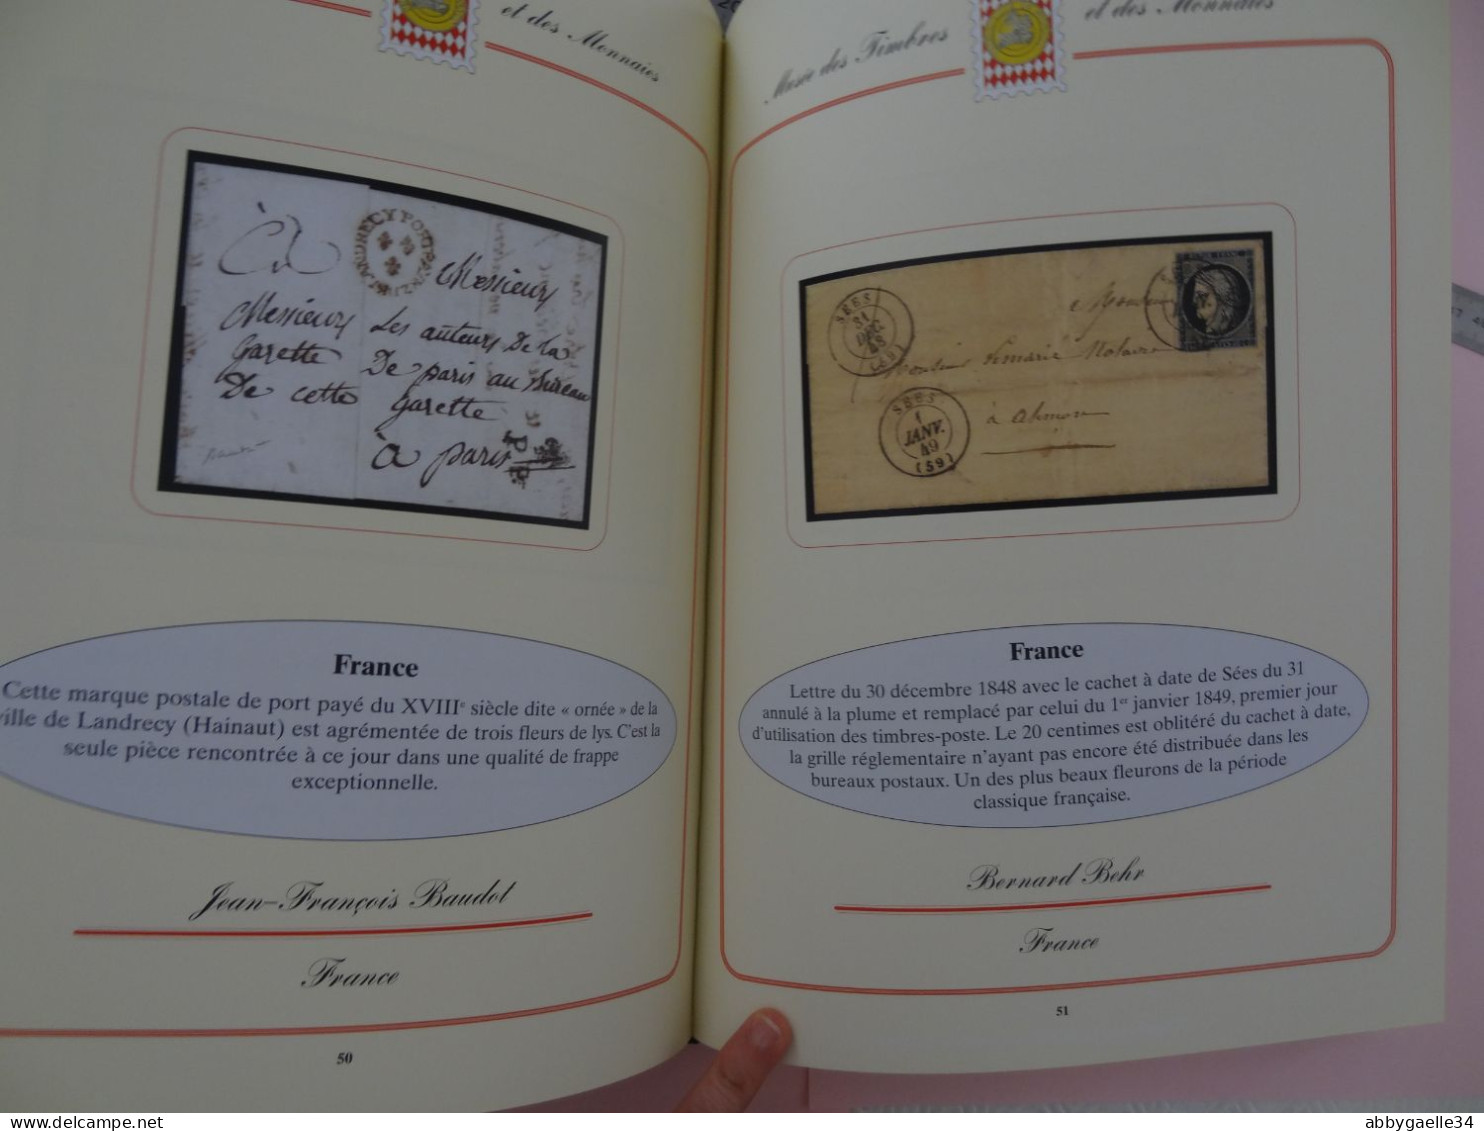 et des Monnaies
à
LANDRECY PORT
Messieurs
Messieurs Les auteurs De la
Gazette De paris au Bureau
De cette Gazette
à paris
P.P.
France
Cette marque postale de port payé du XVIIIe siècle dite « ornée » de la
ville de Landrecy (Hainaut) est agrémentée de trois fleurs de lys. C'est la
seule pièce rencontrée à ce jour dans une qualité de frappe
exceptionnelle.
Jean-François Baudot
France
50
Musée des Timbres et des Monnaies
SÉES
31
DEC.
48
(59)
Monsieur
Monsieur Notaire
à
SÉES
1
JANV.
49
(59)
France
Lettre du 30 décembre 1848 avec le cachet à date de Sées du 31
annulé à la plume et remplacé par celui du 1er janvier 1849, premier jour
d'utilisation des timbres-poste. Le 20 centimes est oblitéré du cachet à date,
la grille réglementaire n'ayant pas encore été distribuée dans les
bureaux postaux. Un des plus beaux fleurons de la période
classique française.
Bernard Behr
France
51
abbygaelle34